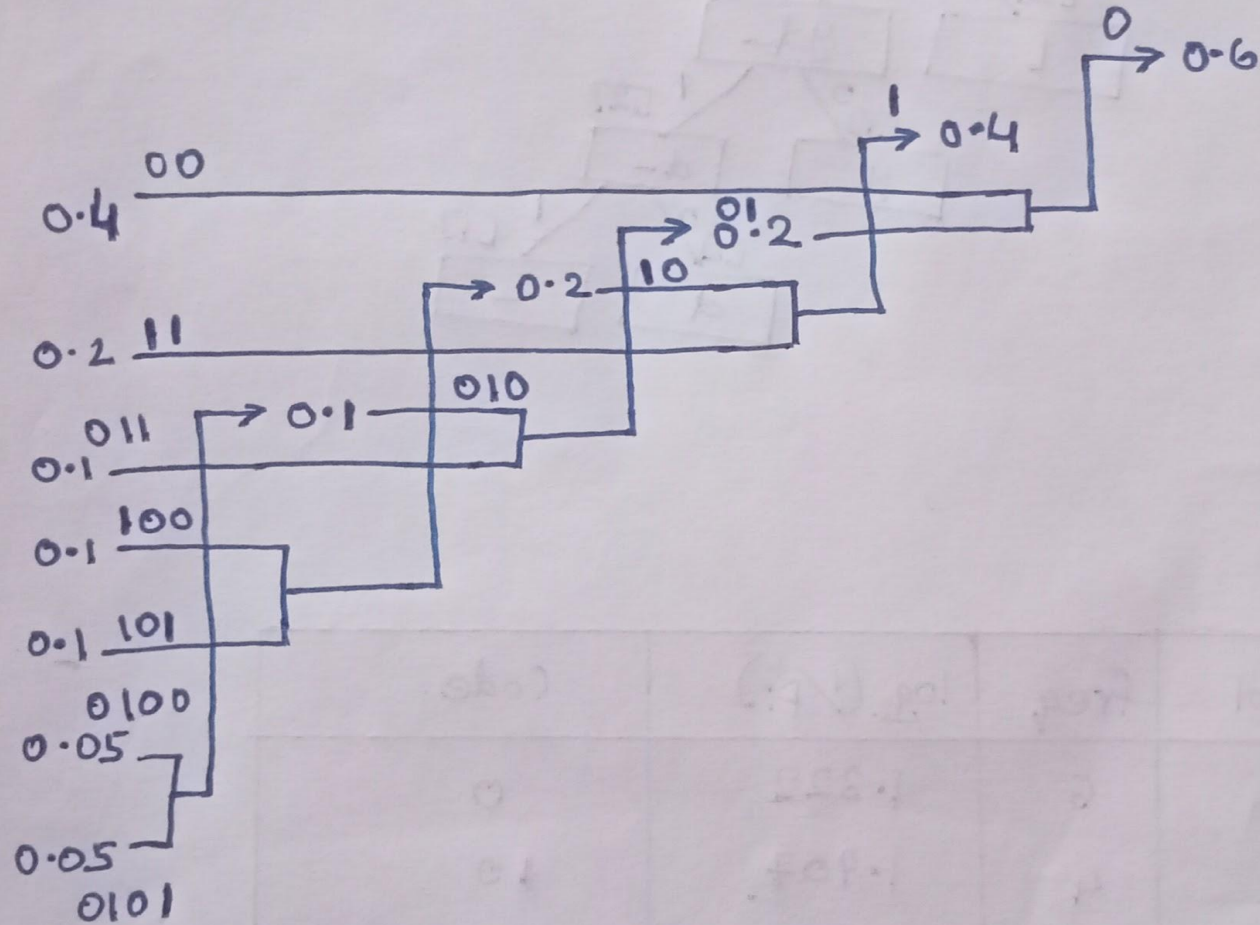 0
0.6
1
0.4
00
0.4
01
0.2
10
0.2
11
0.2
010
0.1
011
0.1
100
0.1
101
0.1
0100
0.05
0.05
0101